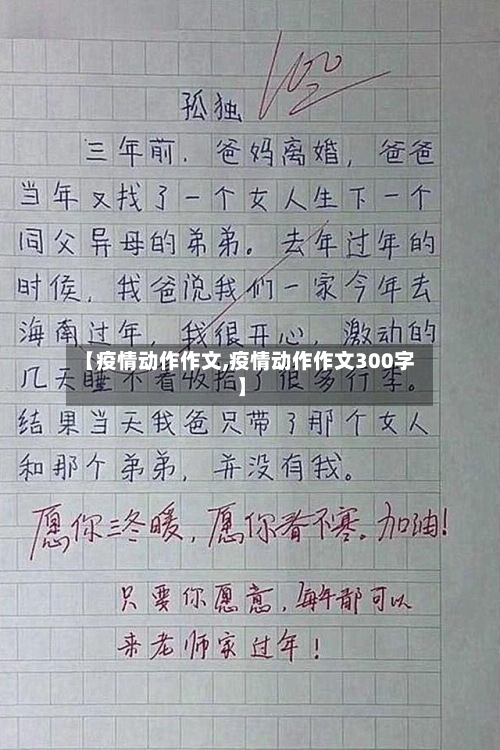 100
孤独
三年前，爸妈离婚，爸爸
当年又找了一个女人生下一个
同父异母的弟弟。去年过年的
时侯，我爸说我们一家今年去
海南过年，我很开心，激动的
【疫情动作作文,疫情动作作文300字
】
几天睡不着收拾了很多行李。
结果当天我爸只带了那个女人
和那个弟弟，并没有我。
愿你三冬暖，愿你春不寒。加油!
只要你愿意，每年都可以
来老师家过年！